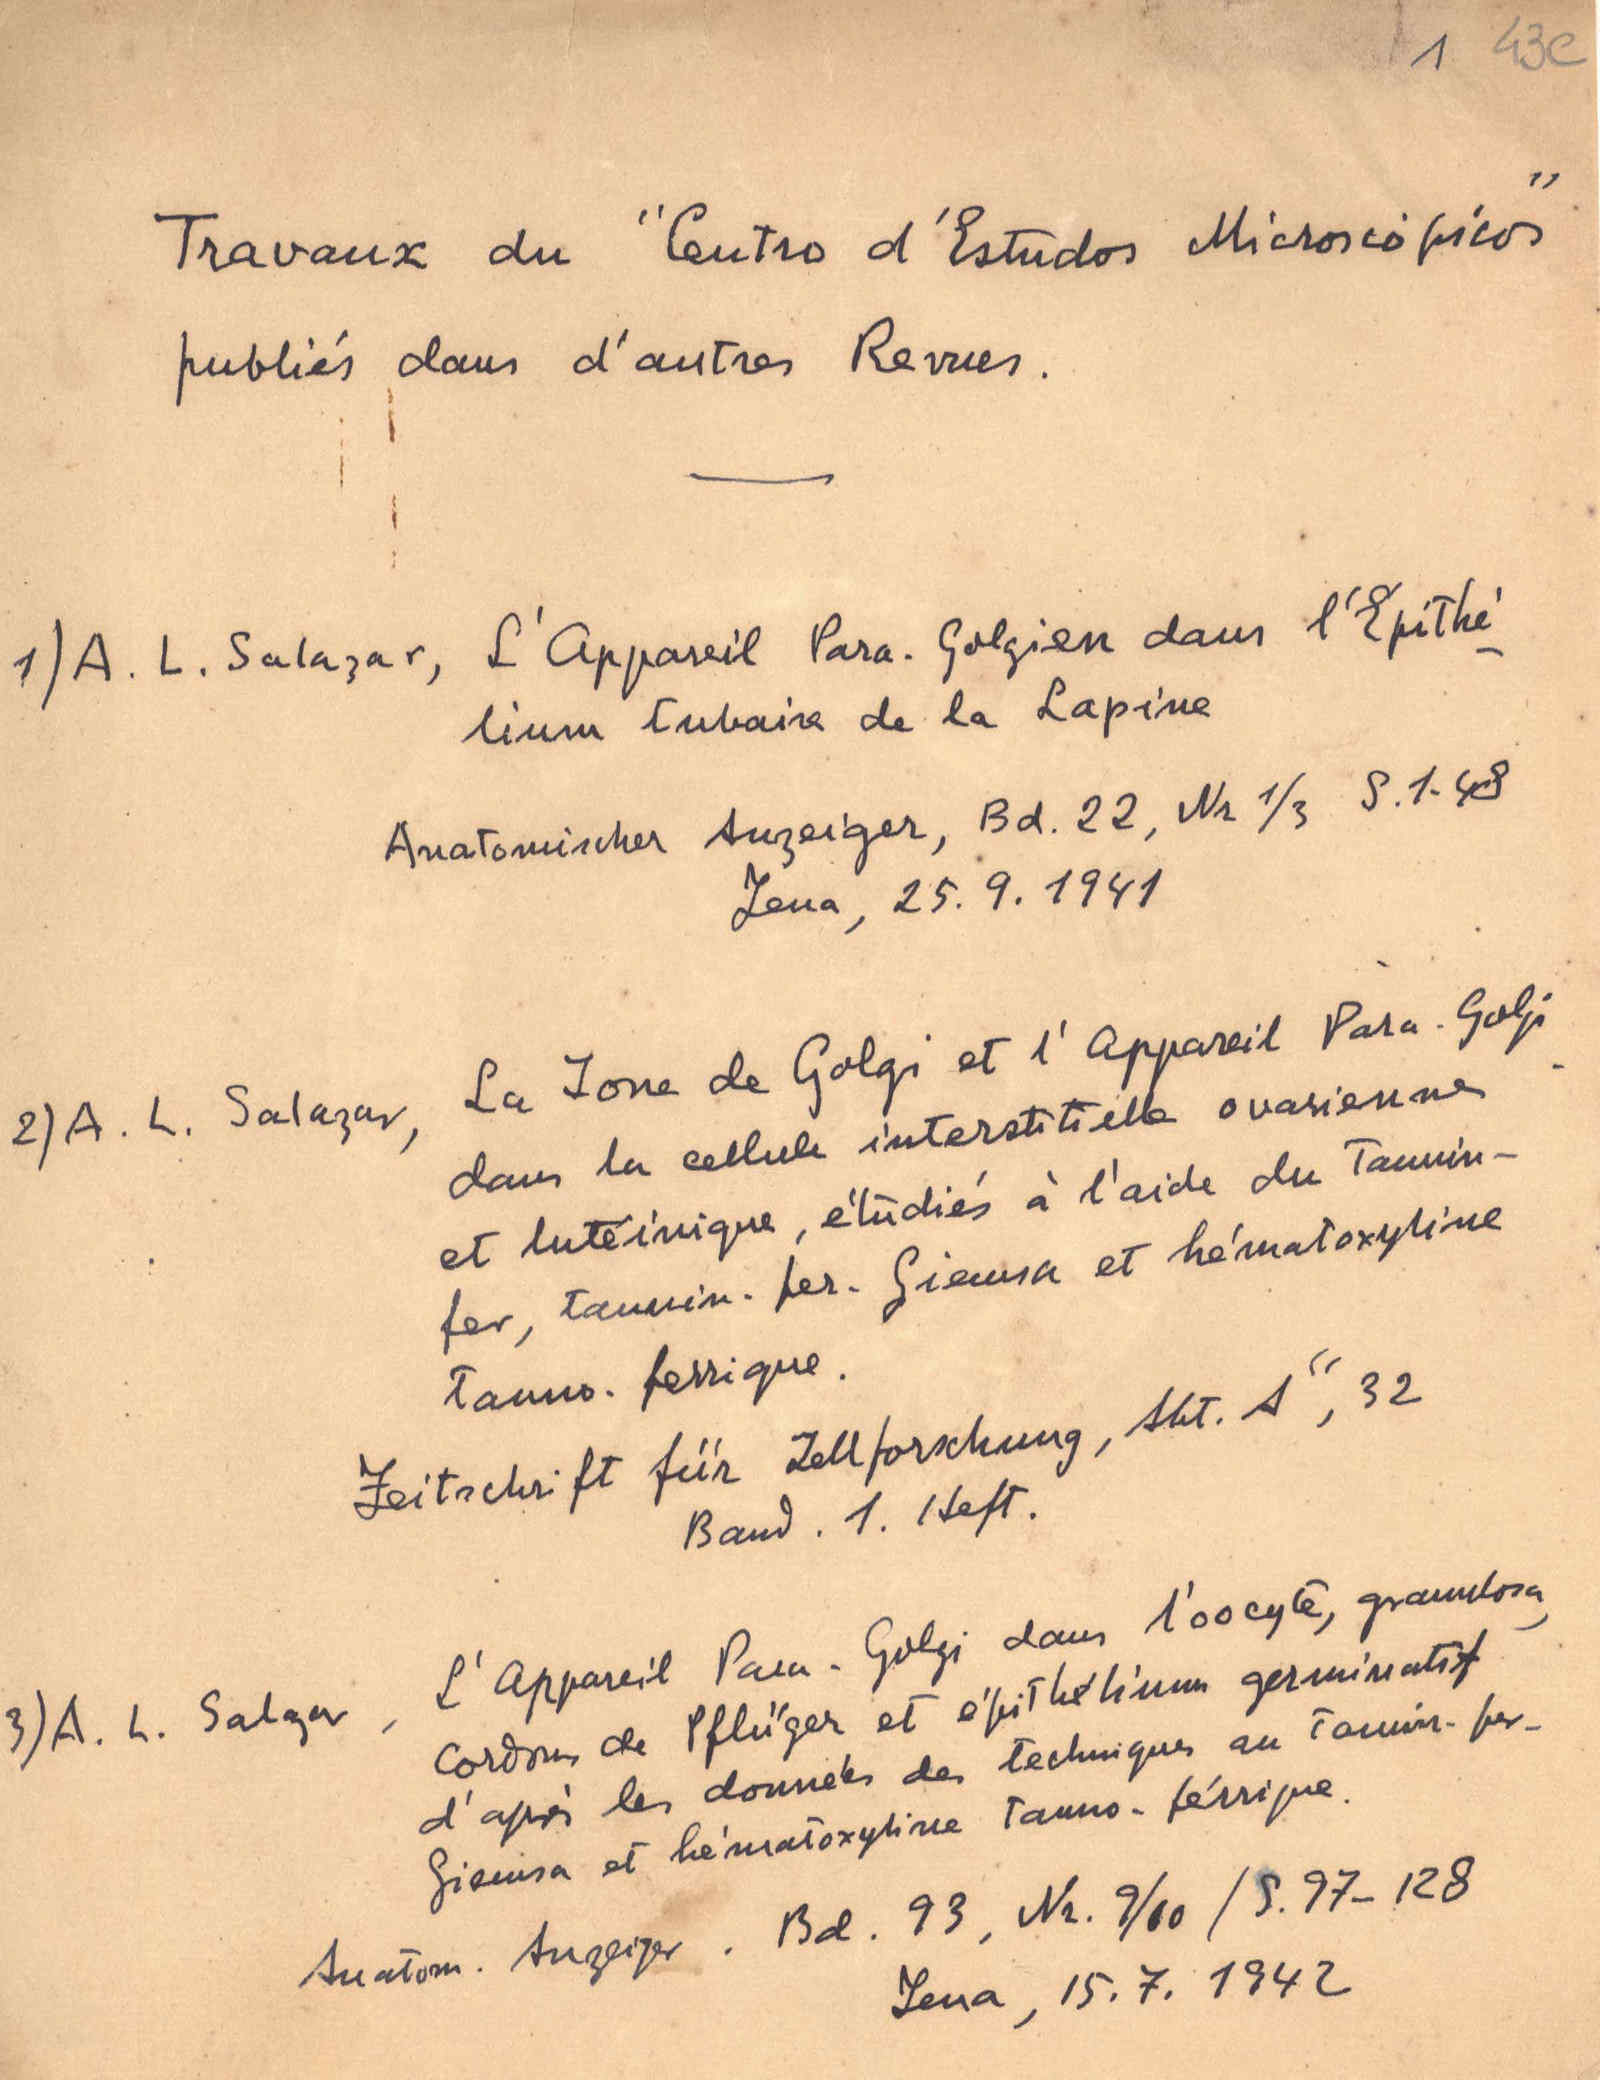 1 43C
Travaux du "Centro d'Estudos Microscópicos"
publiés dans d'autres Revues.
1) A. L. Salazar, L'Appareil Para-Golgien dans l'Épithé-
lium tubaire de la Lapine
Anatomischer Anzeiger, Bd. 22, Nr 1/3 S. 1-48
Jena, 25. 9. 1941
2) A. L. Salazar, La Zone de Golgi et l'Appareil Para-Golgi
dans la cellule interstitielle ovarienne
et lutéinique, étudiés à l'aide du Tannin-
fer, tannin-fer-Giemsa et hématoxyline
tanno-ferrique.
Zeitschrift für Zellforschung, Abt. A", 32
Band. 1. Heft.
3) A. L. Salazar, L'Appareil Para-Golgi dans l'oocyte, granulosa,
Cordons de Pflüger et épithélium germinatif
d'après les données des techniques au Tannin-fer-
Giemsa et hématoxyline Tanno-férrique.
Anatom. Anzeiger. Bd. 93, Nr. 9/10 / S. 97-128
Jena, 15. 7. 1942